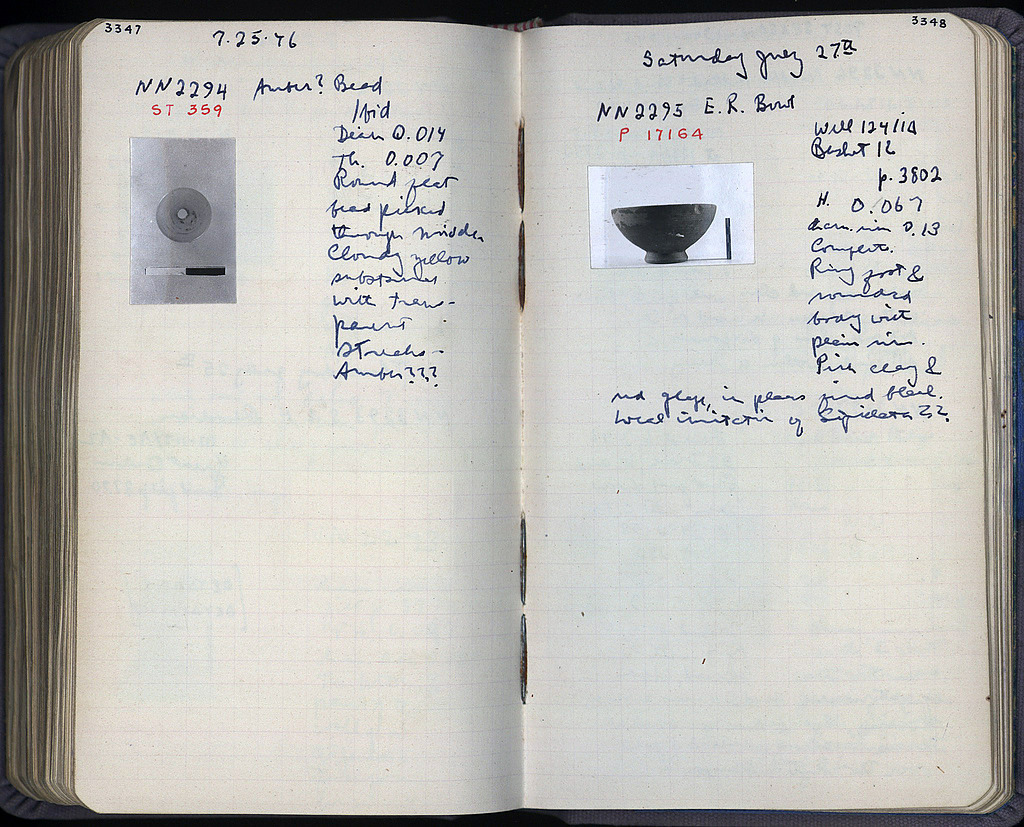 3347
7.25.46
NN2294 Amber? Bead
ST 359
Ibid
Diam 0.014
Th. 0.007
Round flat
bead pierced
through middle
Cloudy yellow
substance
with trans-
parent
streaks-
Amber???
3348
Saturday July 27th
NN2295 E.R. Bowl
P 17164
Well 124/ΙΔ
Basket 12
p. 3802
H. 0.067
diam. rim 0.13
Complete.
Ring foot &
rounded
body with
plain rim.
Pink clay &
red glaze, in places fired black.
Local imitation of Sigillata ??